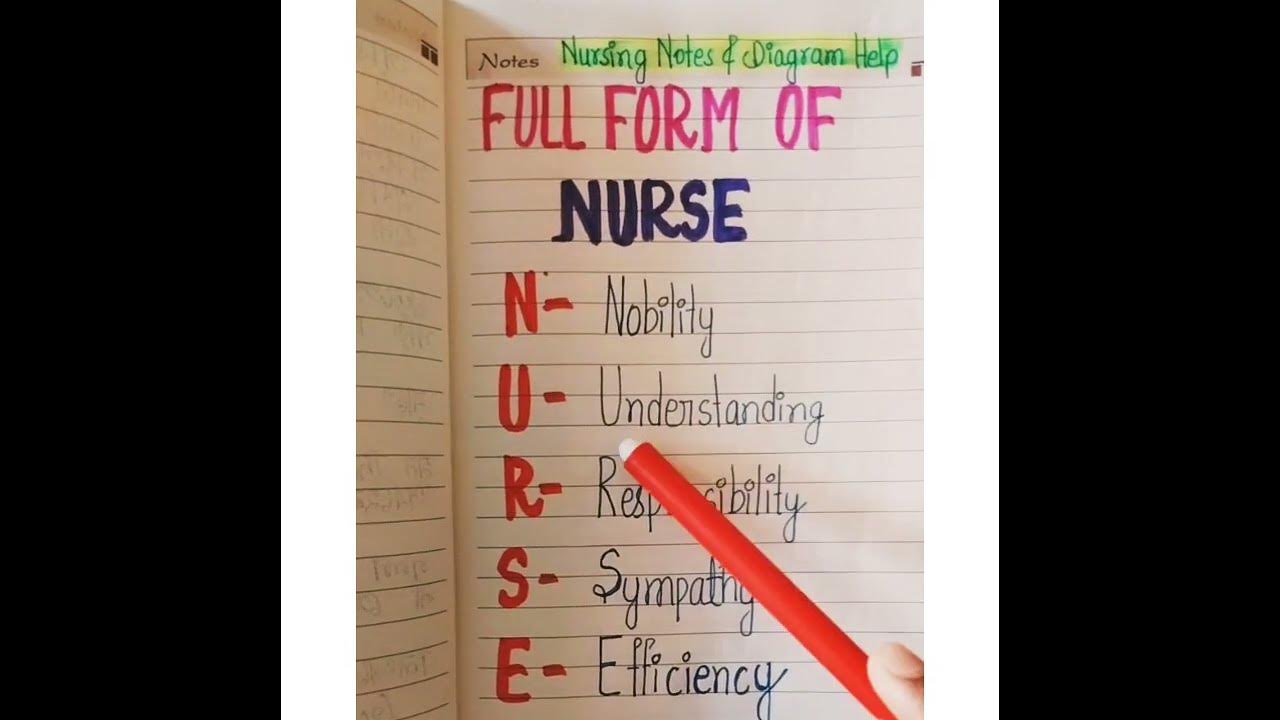 Notes Nursing Notes & Diagram Help
FULL FORM OF
NURSE
N- Nobility
U- Understanding
R- Responsibility
S- Sympathy
E- Efficiency